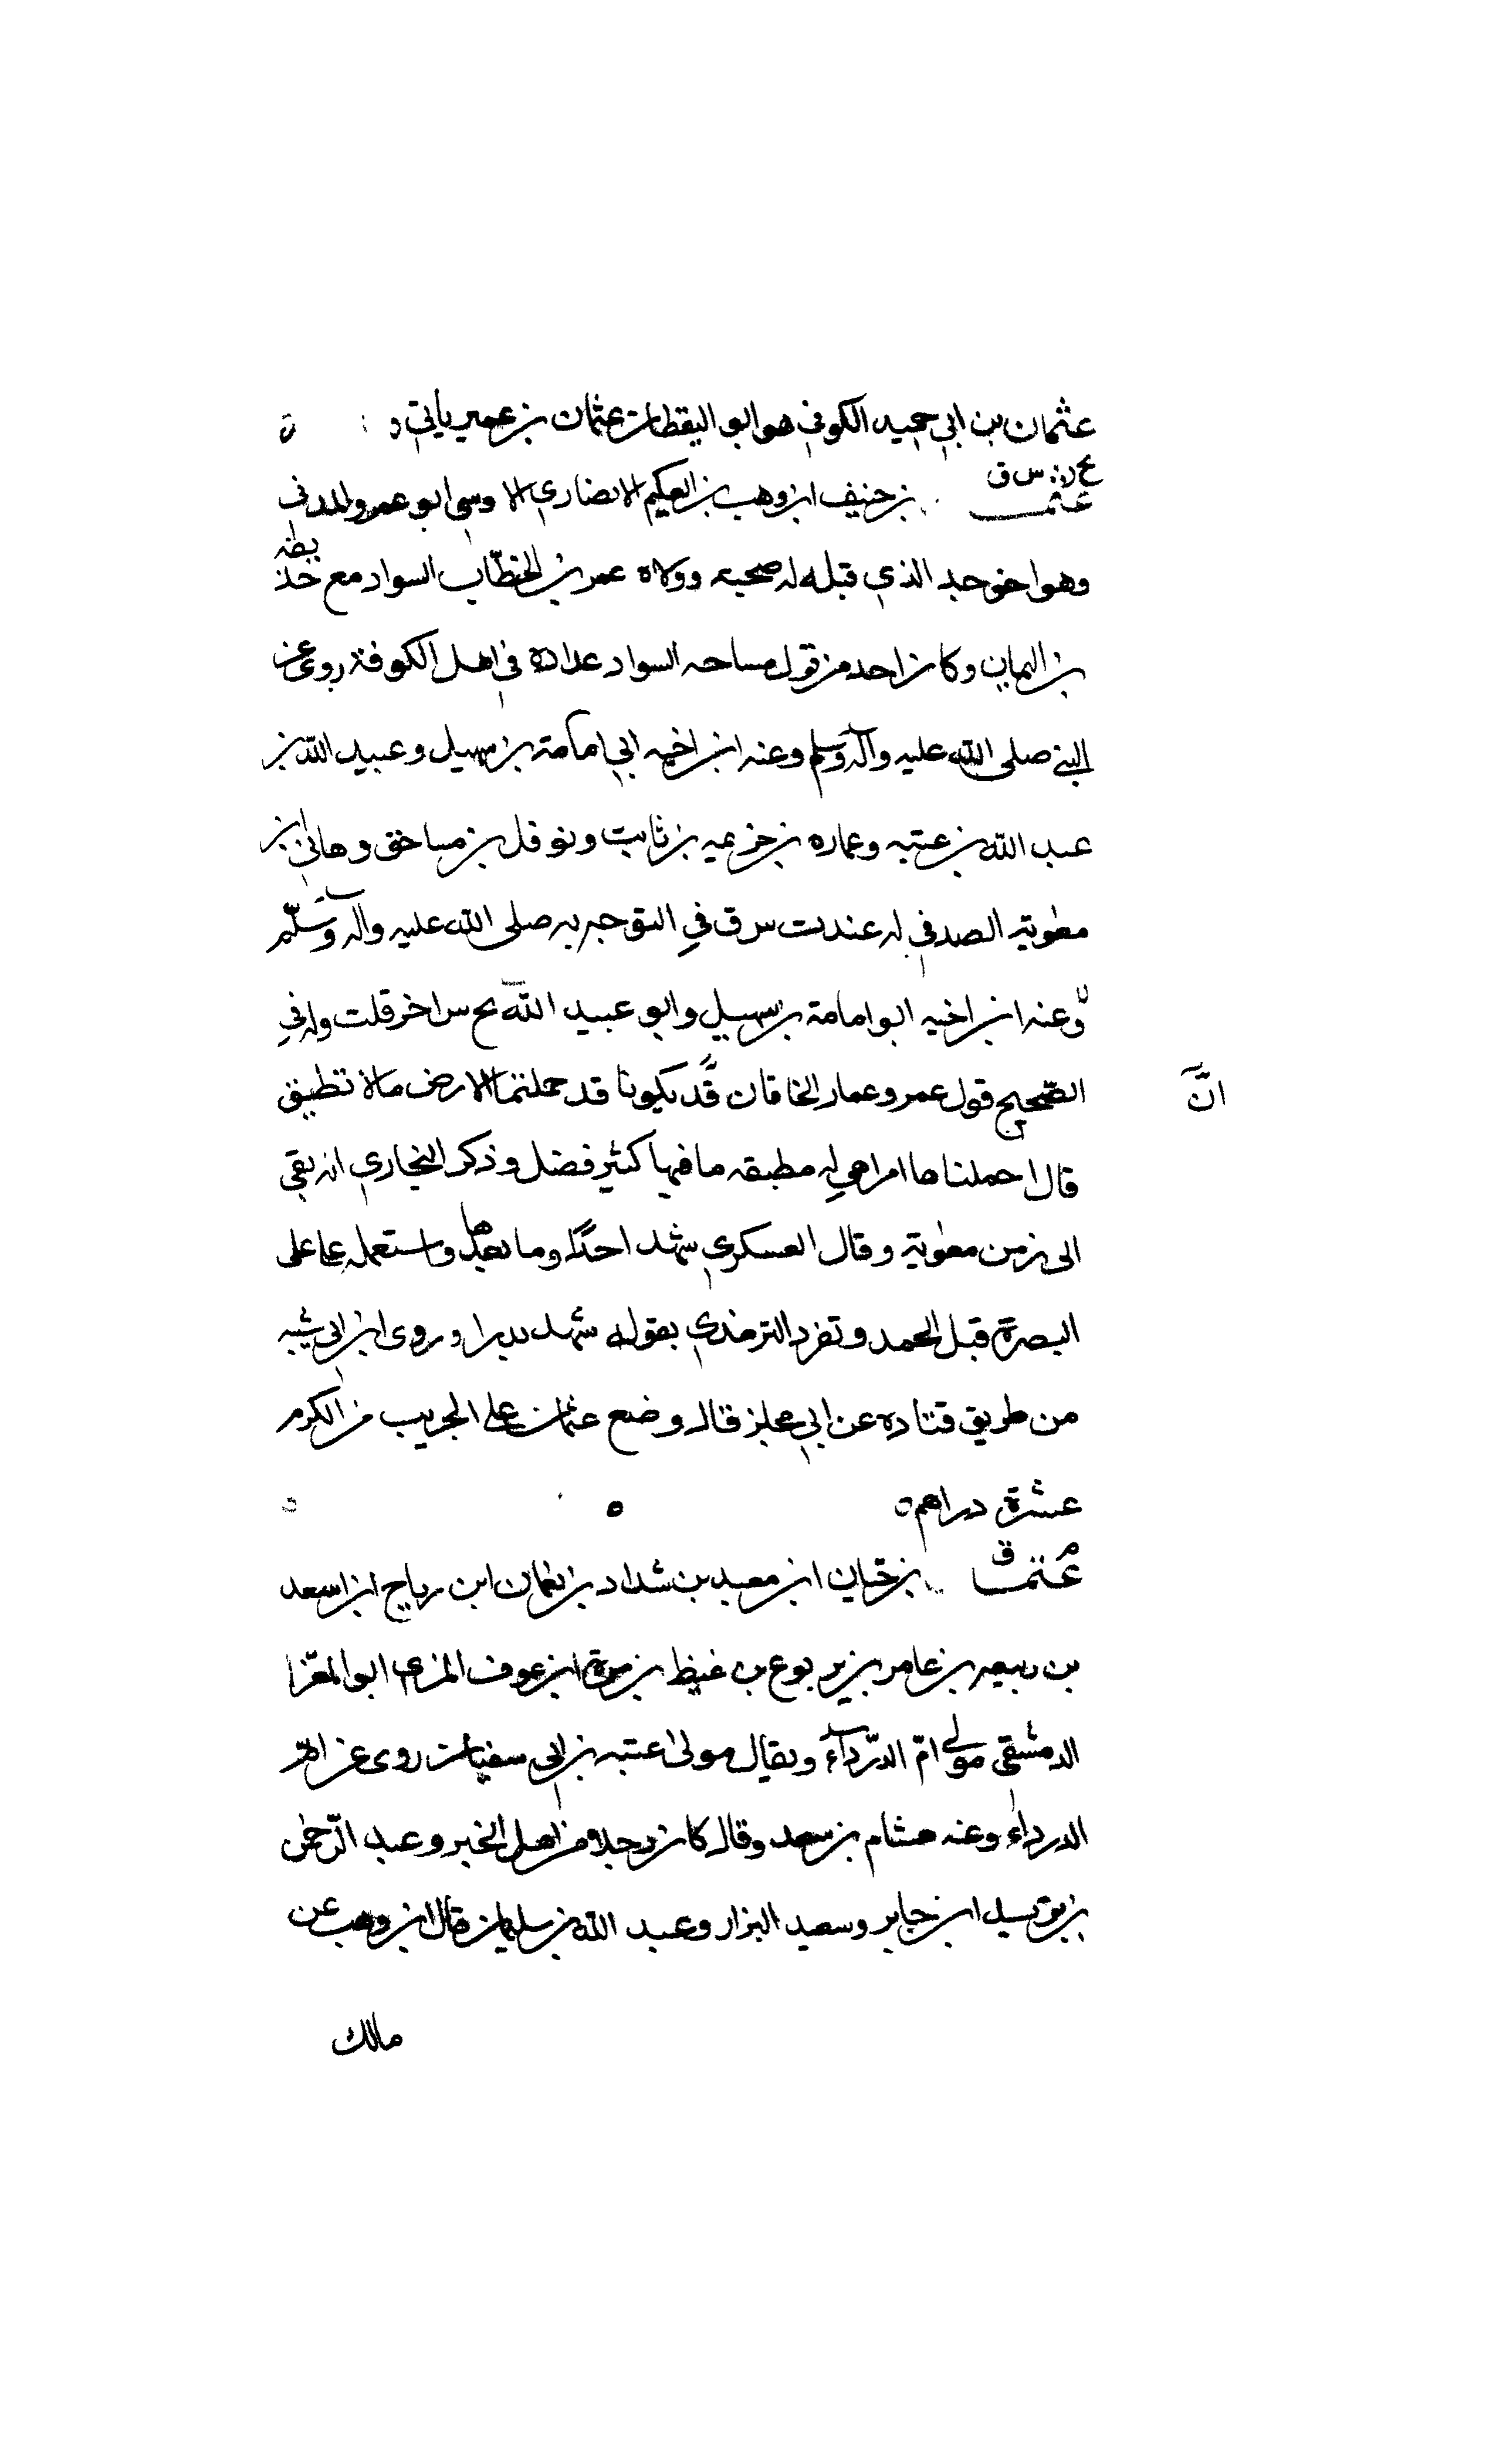 عثمان بن ابي حميد الكوفي هو ابو اليقظان عثمان بن عمير ياتي
بخ ت س ق
عثمـــــان بن حنيف ابن وهب بن العكيم الانصاري الاوسي ابو عمرو المدني
وهو اخو جد الذي قبله له صحبه وولاه عمر بن الخطّاب السواد مع حذيفه
بن اليمان وكان احد من تولى مساحه السواد عداده في اهل الكوفة روى عن
النبي صلى الله عليه وآله وسلم وعنه ابن اخيه ابي امامة بن سهيل وعبيد الله بن
عبد الله بن عتبه وعماره بن خزيمه بن ثابت ونوفل بن مساحق وهاني ابن
معٰوية الصدفي له عند ت س ق في التوجه به صلى الله عليه وآله وسلّم
وعنه ابن اخيه ابو امامة بن سهيل وابو عبيد الله بخ س اخر قلت وله في
الصّحيح قول عمر وعمار اتخافان قد يكونا قد حملتما الارض مالا تطيق
انَّ
قال احملناها امرا هي له مطبقه ما فيها كثير فضل وذكر البخاري انه بقى
الى زمن معٰوية وقال العسكري شهد احدًا وما بعدها واستعمله على
البصرة قبل الجمل وتفرد الترمذي بقوله شهد بدرا وروى ابن ابي شيبه
من طريق قتاده عن ابي مجلز قال وضع عثمان على الجريب من الكرم
عشرة دراهم
م ق
عثمــان بن حيان ابن معبد بن شداد بن نعمان ابن رياح ابن اسعد
بن ربيعه بن عامر بن يربوع بن غيظ بن مرة ابن عوف المزي ابو المغرا
الدمشقي مولى امّ الدّرداء ويقال مولى عتبه بن ابي سفيان روى عن ام
الدرداء وعنه هشام بن سعد وقال كان رجلا من اهل الخير وعبد الرّحمن
بن يزيد ابن جابر وسعيد البزار وعبد الله بن سليمان قال ابن وهب عن
مالك